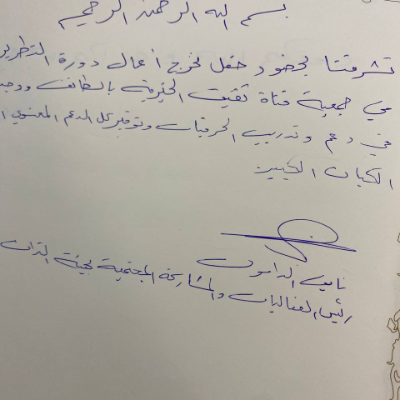 بسم الله الرحمن الرحيم
تشرفنا بحضور حفل تخرج أعمال دورة التطريز
في جمعية فتاة ثقيف الخيرية بالطائف ووجد
في دعم وتدريب الحرفيات وتوفير كل الدعم المعنوي
الكبير
نايف
رئيس الفعاليات والمشاركة المجتمعية بهيئة التراث